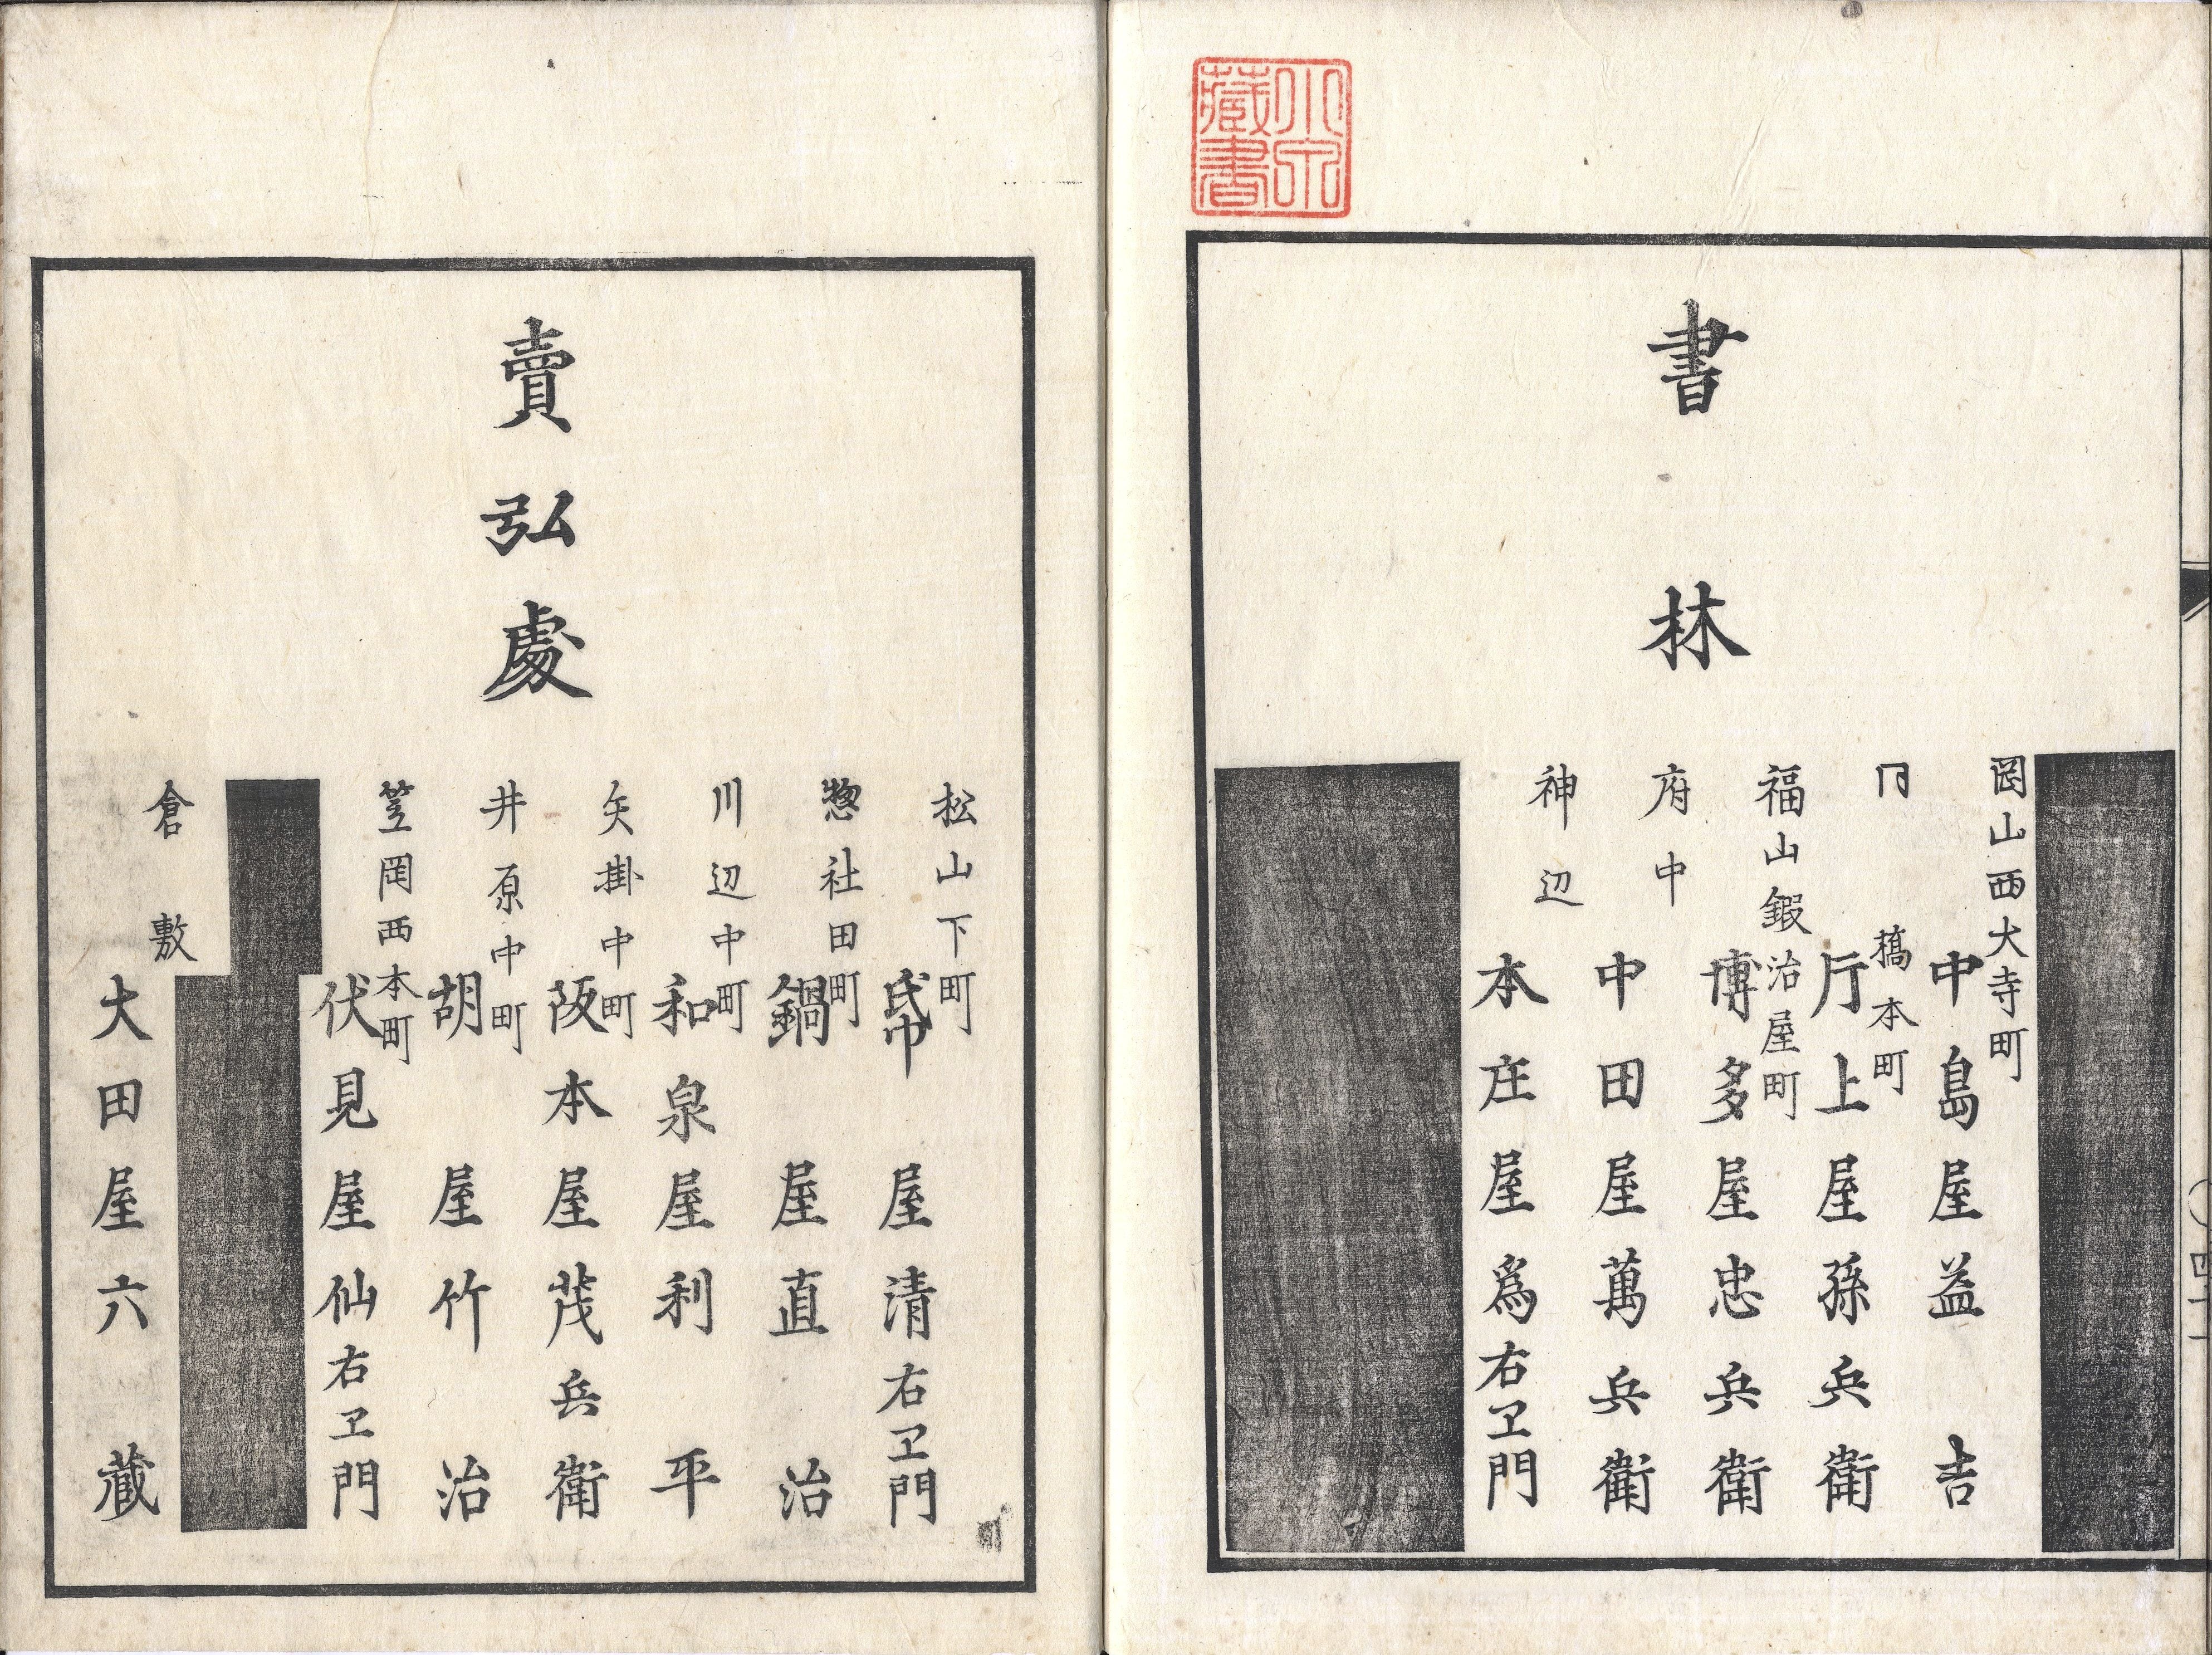 書林
岡山西大寺町
中島屋益吉
冂 橋本町
片上屋孫兵衛
福山鍜治屋町
博多屋忠兵衛
府中
中田屋萬兵衛
神辺
本庄屋爲右ヱ門
藏書
賣弘處
松山下町
帋屋清右ヱ門
惣社田町
鍋屋直治
川辺中町
和泉屋利平
矢掛中町
阪本屋茂兵衛
井原中町
胡屋竹治
笠岡西本町
伏見屋仙右ヱ門
倉敷
大田屋六蔵